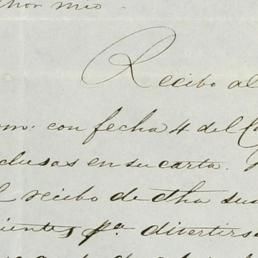 mio.
Recibo al
con fecha 4 del C
clusas en su carta.
recibo de dha sus
ientes pa. divertirs